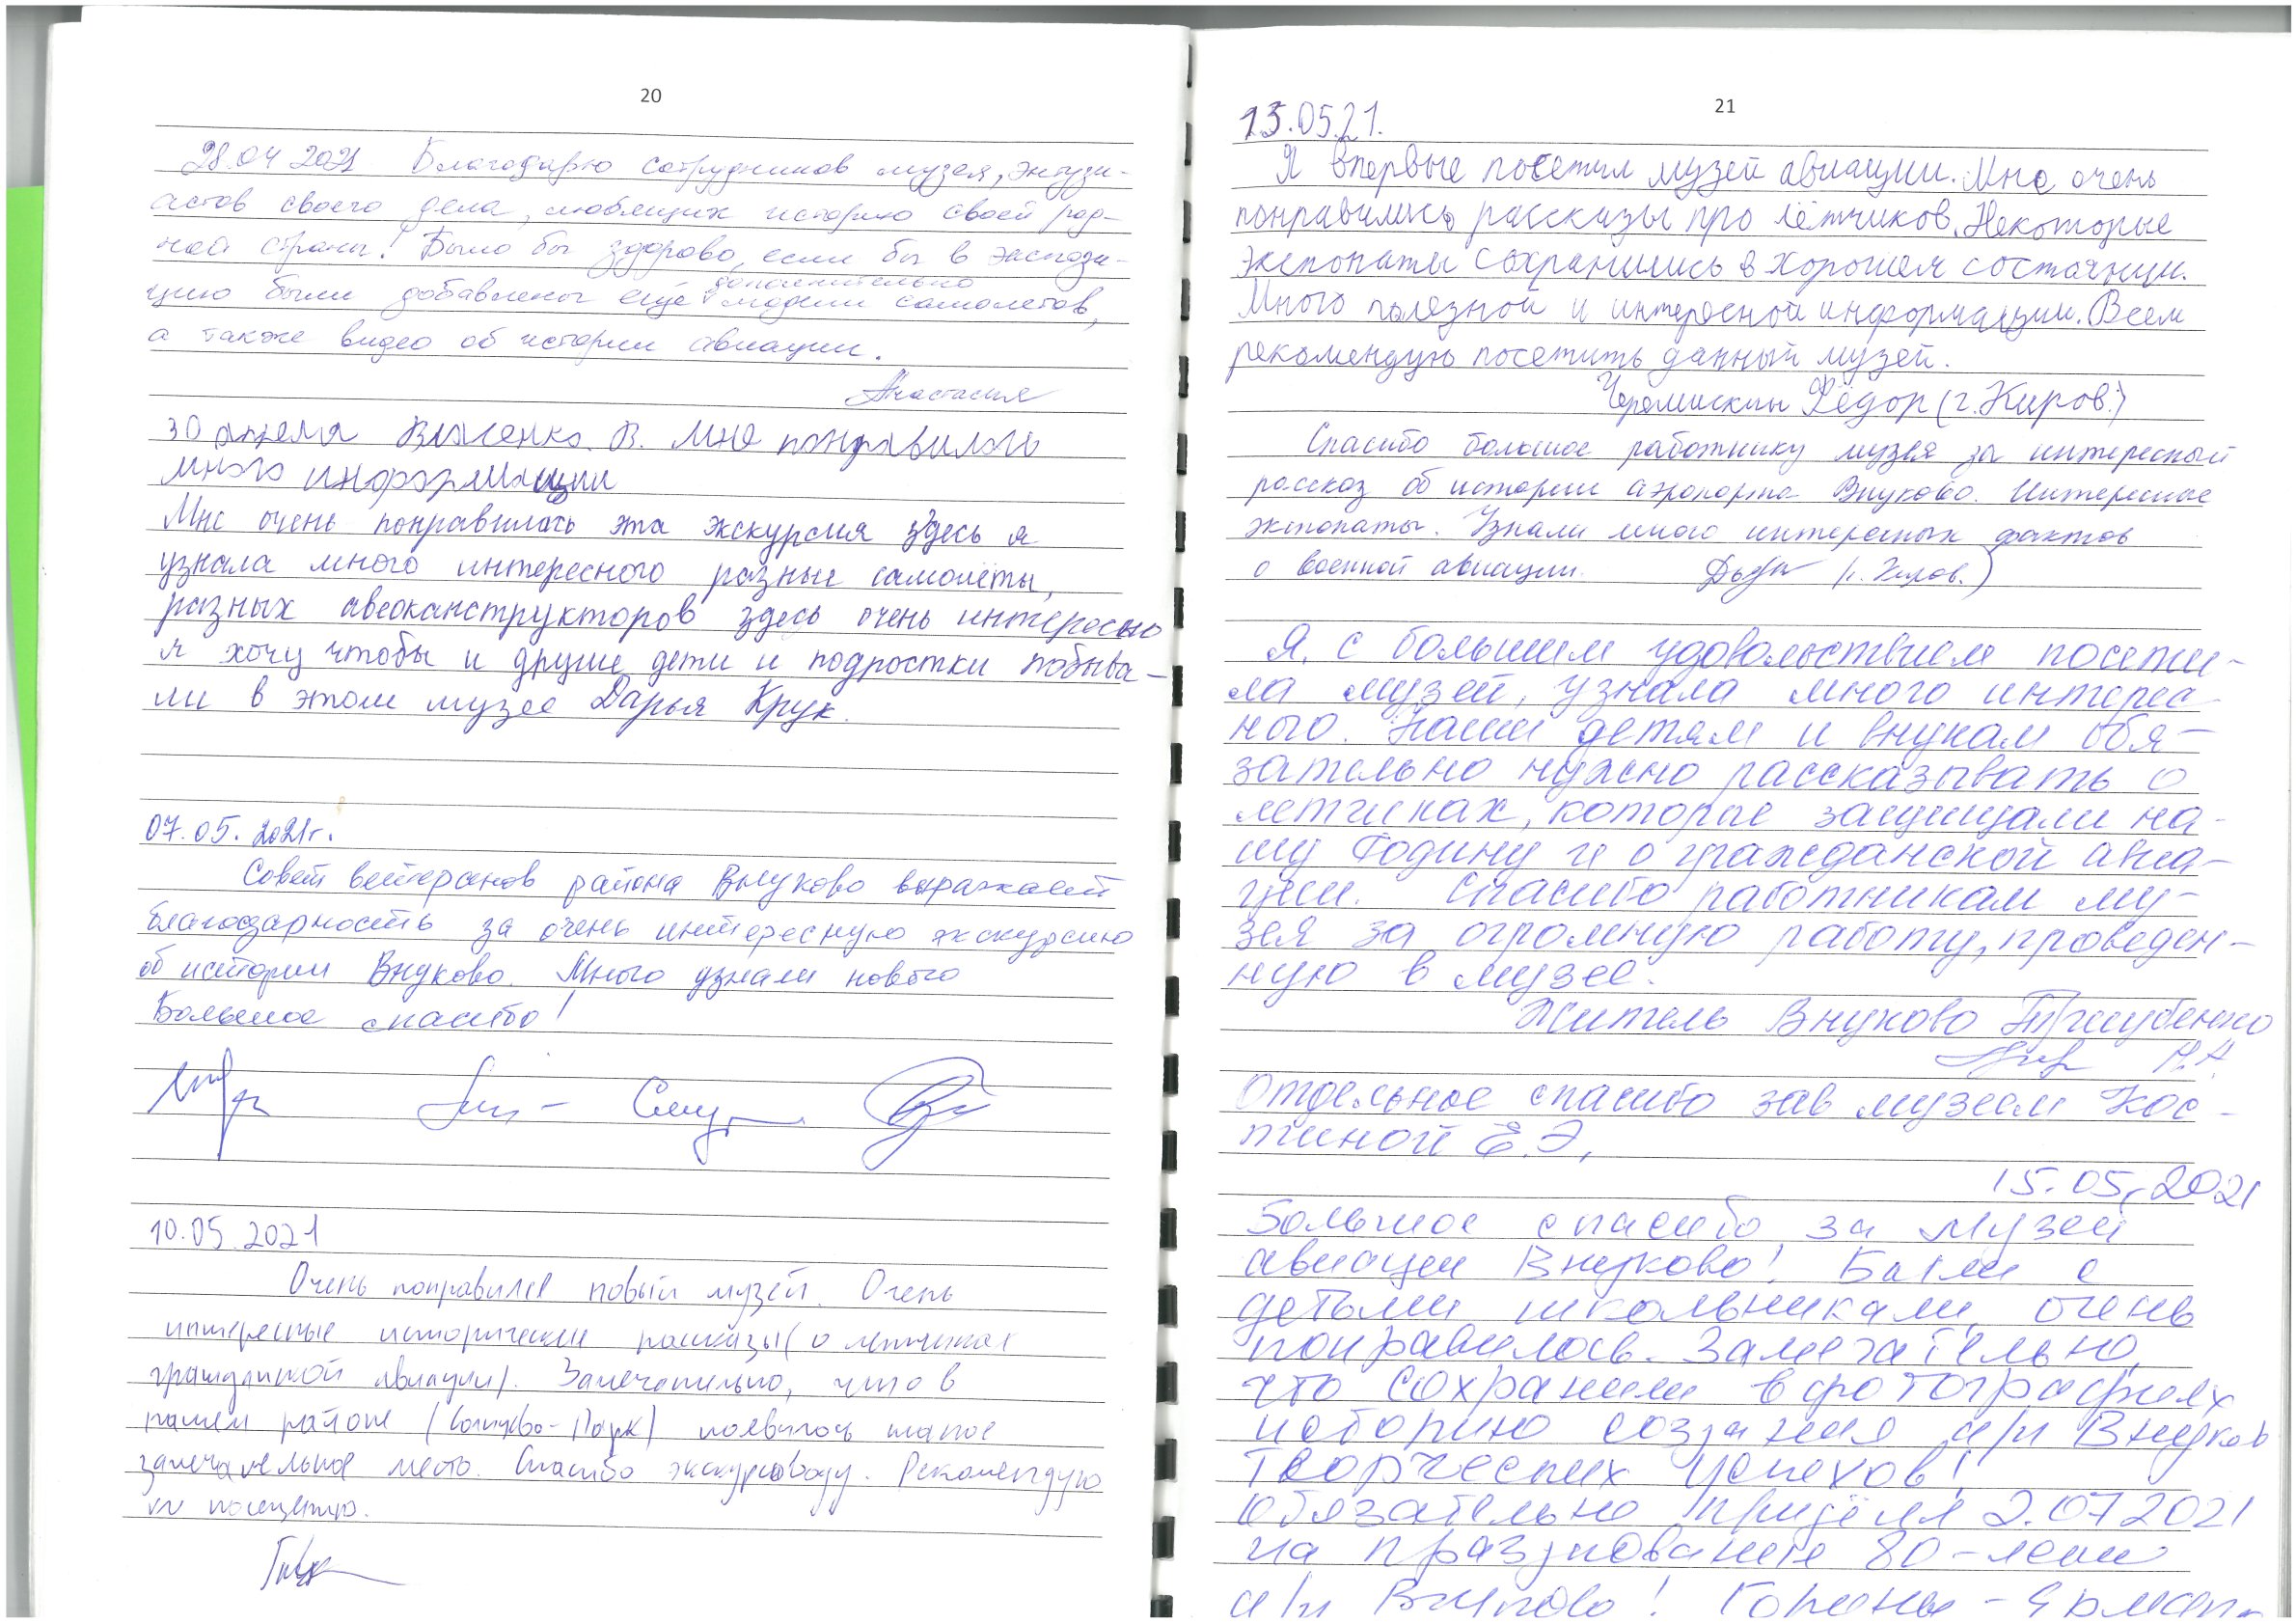 20
28.04 2021 Благодарю сотрудников музея, энтузи-
астов своего дела, любящих историю своей род-
ной страны! Было бы здорово, если бы в экспози-
дополнительно
цию были добавлены ещё модели самолетов,
а также видео об истории авиации.
Анастасия
30 апреля Власенко. В. Мне понравилось
много информации
Мне очень понравилась эта экскурсия здесь я
узнала много интересного разные самолёты,
разных авеоканструкторов здесь очень интересно
я хочу чтобы и другие дети и подростки побыва-
ли в этом музее Дарья Крук.
07.05.2021г.
Совет ветеранов района Внуково выражает
благодарность за очень интересную экскурсию
об истории Внуково. Много узнали нового
Большое спасибо!
10.05.2021
Очень понравился новый музей. Очень
интересные исторические рассказы (о летчиках
гражданской авиации). Замечательно, что в
нашем районе (Солнцево-Парк) появилось такое
замечательное место. Спасибо экскурсоводу. Рекомендую
к посещению.
21
13.05.21.
Я впервые посетил музей авиации. Мне очень
понравились рассказы про лётчиков. Некоторые
экспонаты сохранились в хорошем состоянии.
Много полезной и интересной информации. Всем
рекомендую посетить данный музей.
Черемискин Фёдор (г. Киров.)
Спасибо большое работнику музея за интересный
рассказ об истории аэропорта Внуково. Интересные
экспонаты. Узнали много интересных фактов
о военной авиации. (г. Киров.)
Я, с большим удовольствием посети-
ла музей, узнала много интерес
ного. Наши детям и внукам обя-
зательно нужно рассказывать о
летчиках, которые защищали на-
шу Родину и о гражданской авиа-
ции. Спасибо работникам му-
зея за огромную работу, проведен-
ную в музее.
Житель Внуково
Отдельное спасибо зав музеем Кос-
тиной Е.Э,
15.05.2021
Большое спасибо за музей
авиации Внуково! Были с
детьми школьниками, очень
понравилось. Замечательно,
что сохранили в фотографиях
историю создания а/п Внуков
Творческих успехов!
обязательно придём 2.07 2021
на празднование 80-лети
а/п Внуково!